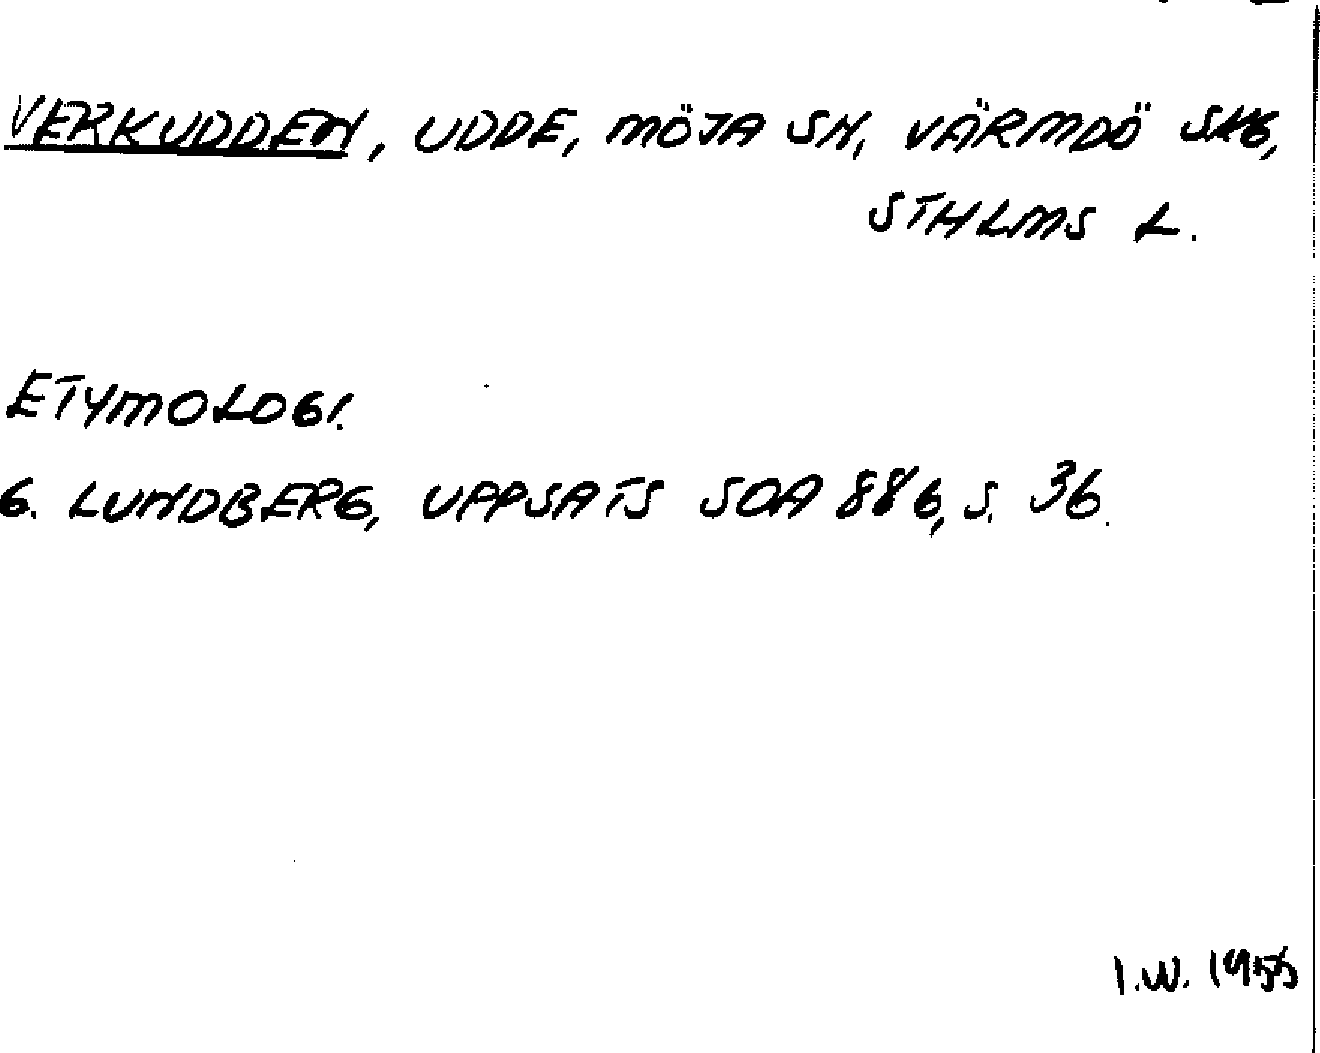 VERKUDDEN, UDDE, MÖJA SN, VÄRMDÖ SKG,
STHLMS L.
ETYMOLOGI.
G. LUNDBERG, UPPSATS SOA 886, S. 36.
I.W. 1955